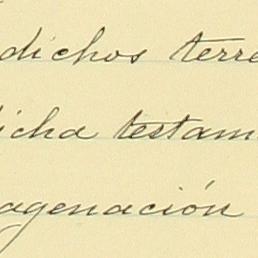 dichos terre
icha testam
agenación